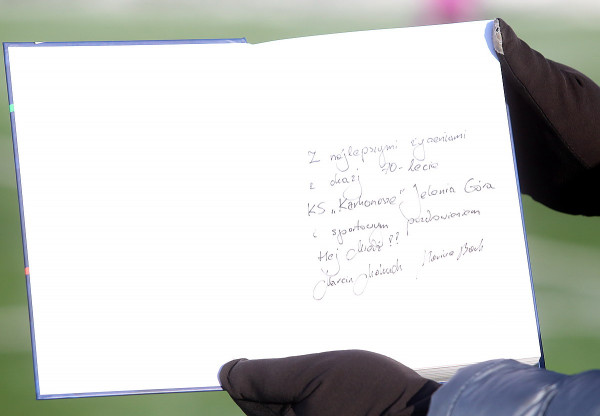 Z najlepszymi życzeniami
z okazji 70-lecia
KS „Karkonosze" Jelenia Góra
i sportowym pozdrowieniem
Hej
Marcin